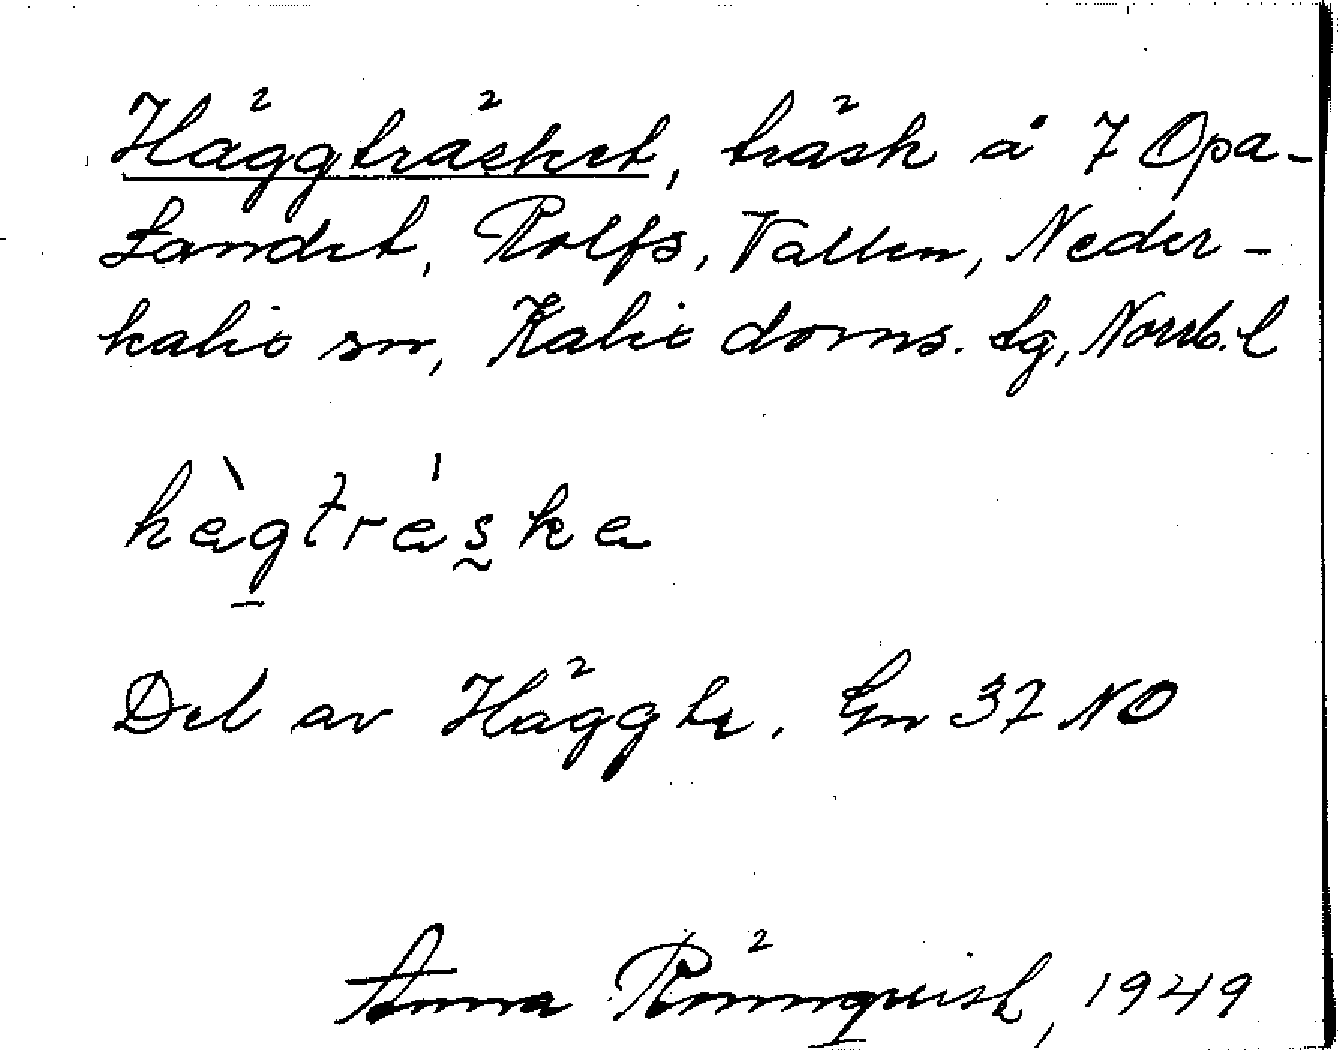 Häggträsket, träsk å 7 Opa-
Landet, Rolfs, Vallen, Neder-
kalix sn, Kalix doms. lg, Norrb. l
hàgtráska
Del av Häggtr. Gn 37 NO
Anna Rönnqvist, 1949